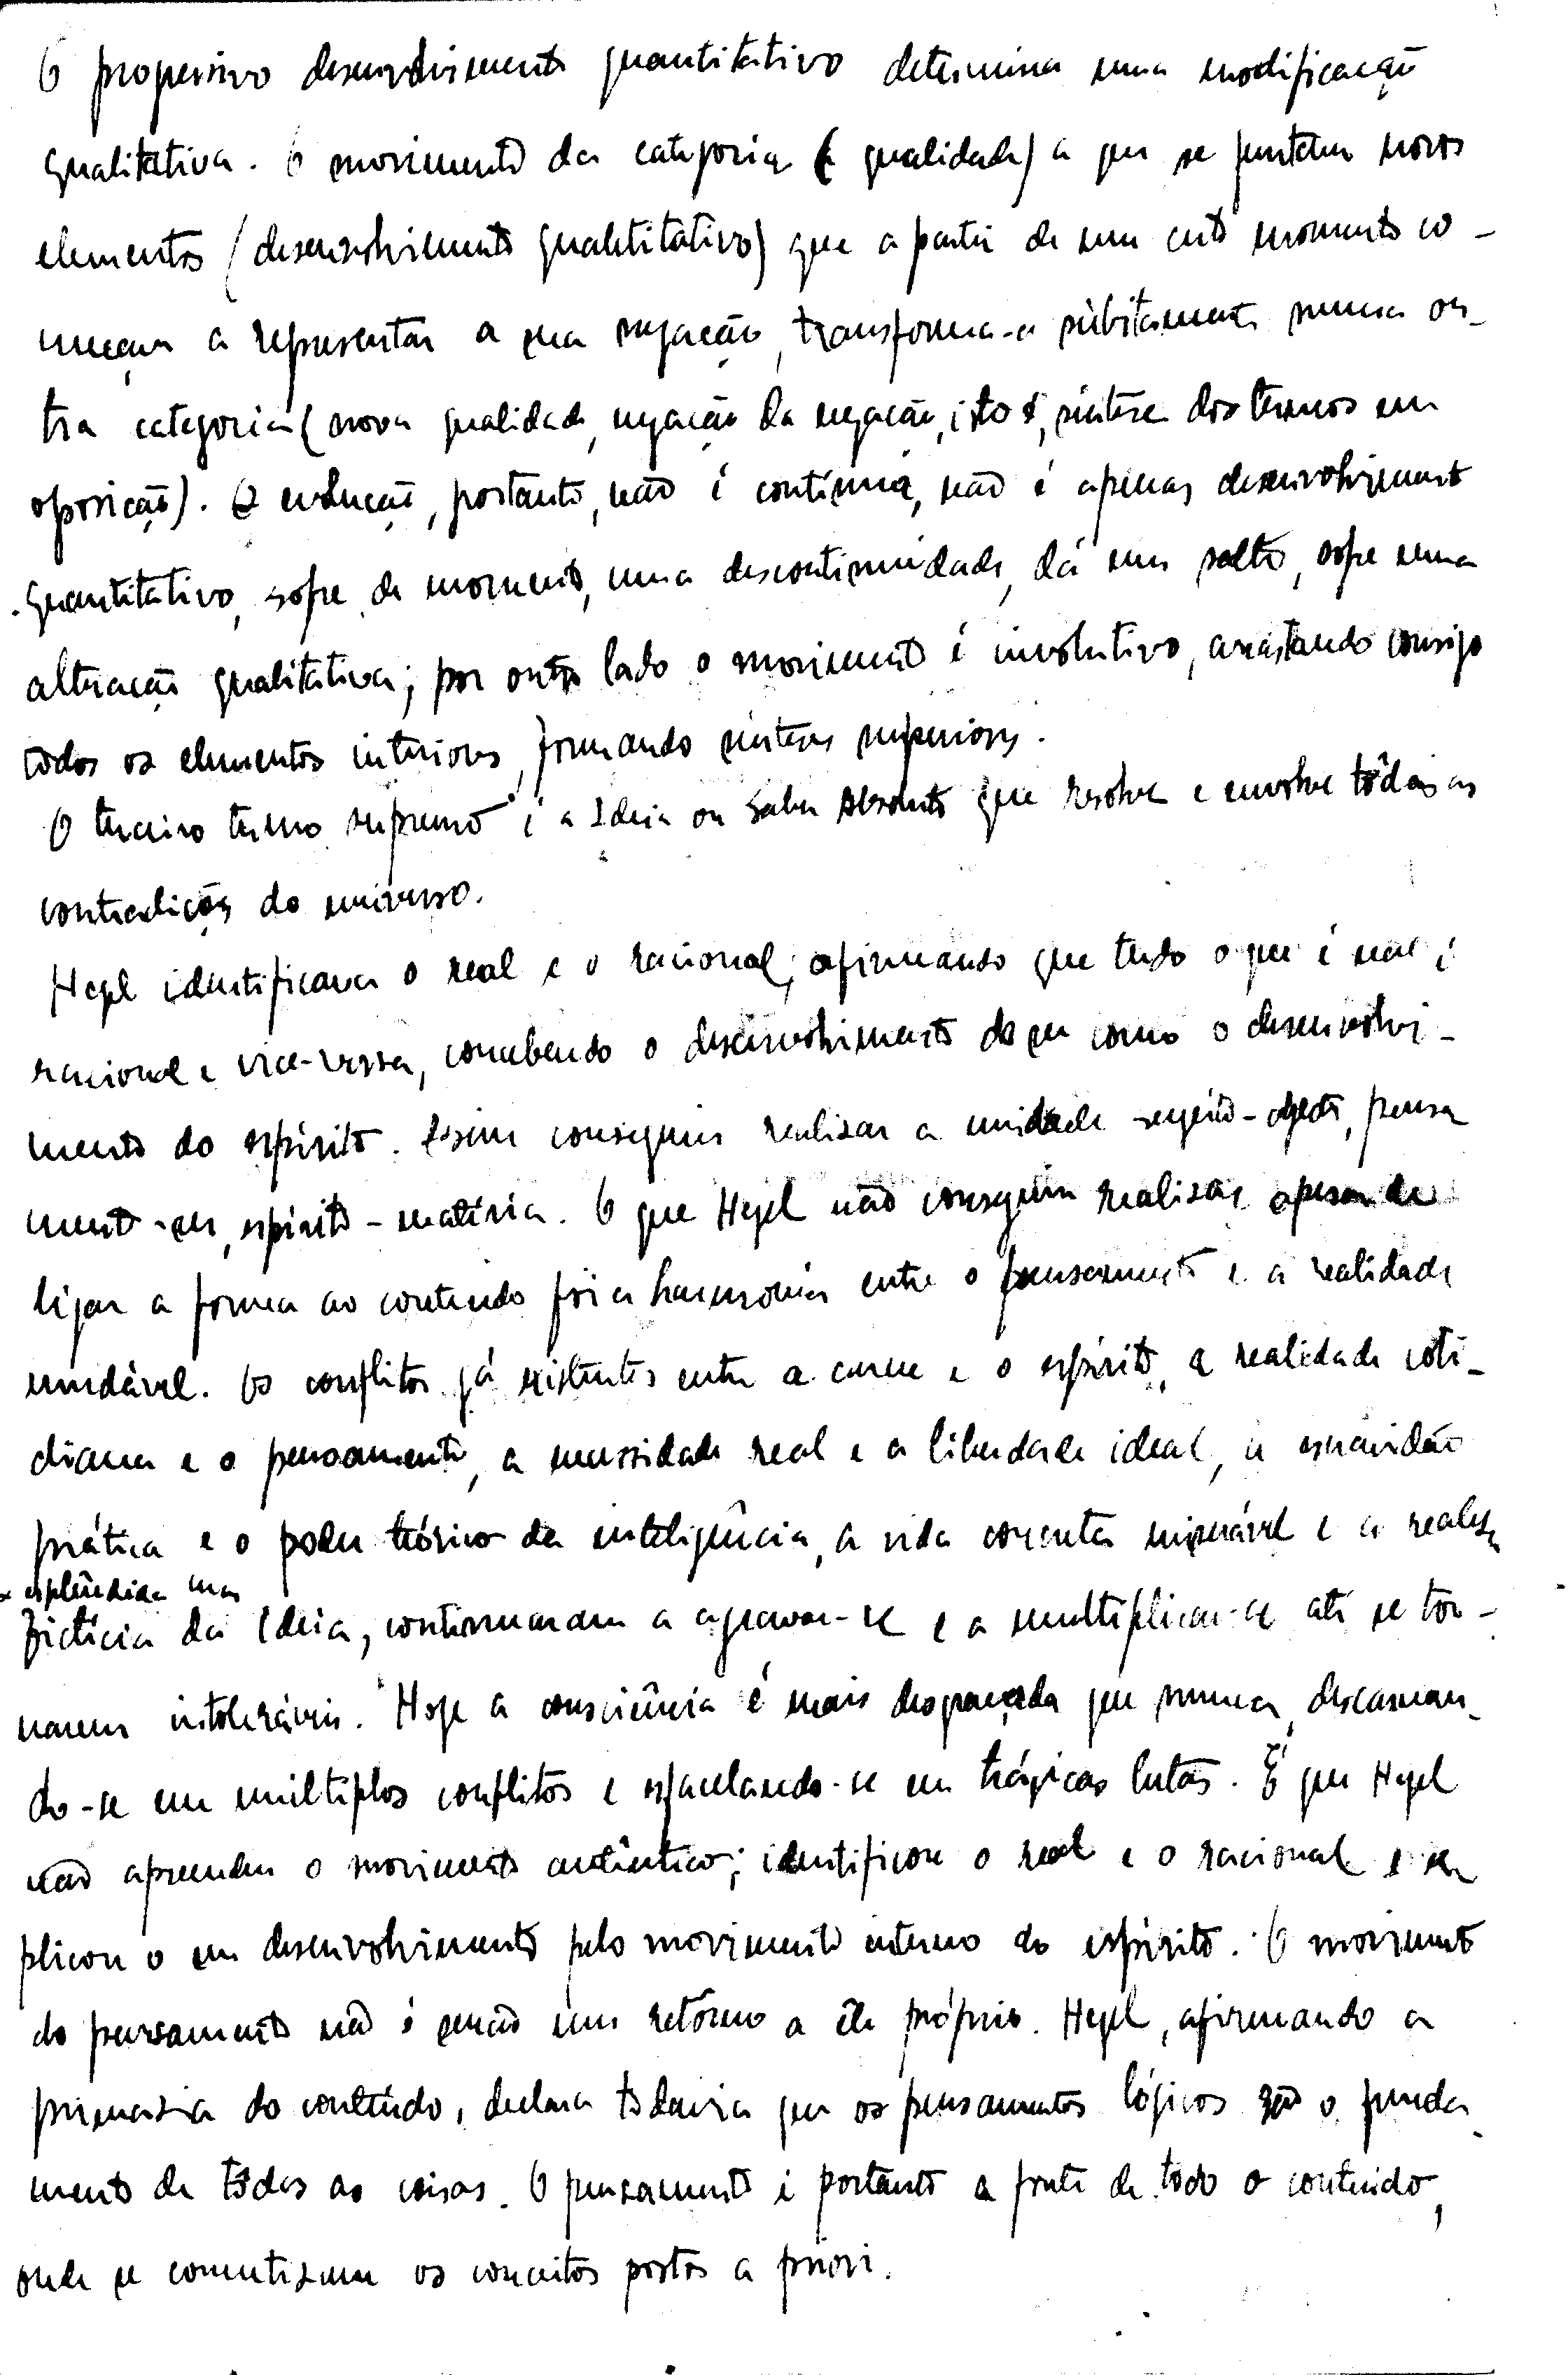 O progressivo desenvolvimento quantitativo determina uma modificação
qualitativa. O movimento da categoria (a qualidade) a que se juntam novos
elementos (desenvolvimento quantitativo) que a partir de um certo momento co-
meçam a representar a sua negação, transforma-a súbitamente numa ou-
tra categoria (nova qualidade, negação da negação, isto é, síntese dos termos em
oposição). A evolução, portanto, não é contínua, não é apenas desenvolvimento
quantitativo, sofre de momento, uma descontinuidade, dá um salto, sofre uma
alteração qualitativa; por outro lado o movimento é involutivo, arrastando consigo
todos os elementos interiores, formando sínteses superiores.
O terceiro termo supremo é a Ideia ou Saber Absoluto que resolve e envolve tôdas as
contradições do universo.
Hegel identificava o real e o racional, afirmando que tudo o que é real é
racional e vice-versa, concebendo o desenvolvimento do ser como o desenvolvi-
mento do espírito. Assim conseguiu realizar a unidade sujeito-objecto, pensa
mento-ser, espírito-matéria. O que Hegel não conseguiu realizar apesar de
ligar a forma ao conteúdo foi a harmonia entre o pensamento e a realidade
mudável. Os conflitos já existentes entre a carne e o espírito, a realidade coti-
diana e o pensamento, a necessidade real e a liberdade ideal, a escravidão
prática e o poder teórico da inteligência, a vida concreta miserável e a realeza
esplêndida mas
fictícia da Ideia, continuaram a agravar-se e a multiplicar-se até se tor-
narem intoleráveis. Hoje a consciência é mais desgraçada que nunca, descarnan-
do-se em múltiplos conflitos e esfacelando-se em trágicas lutas. É que Hegel
não apreendeu o movimento autêntico; identificou o real e o racional e ex
plicou o seu desenvolvimento pelo movimento interno do espírito. O movimento
do pensamento não é senão um retôrno a êle próprio. Hegel, afirmando a
primazia do conteúdo, declara todavia que os pensamentos lógicos são o funda
mento de tôdas as coisas. O pensamento é portanto a fonte de todo o conteúdo,
onde se os conceitos postos a priori.